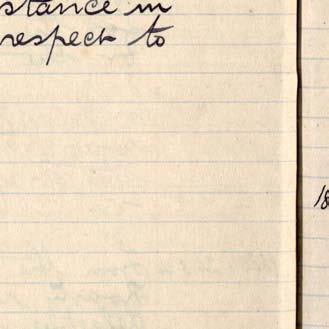 stance in
respect to
18